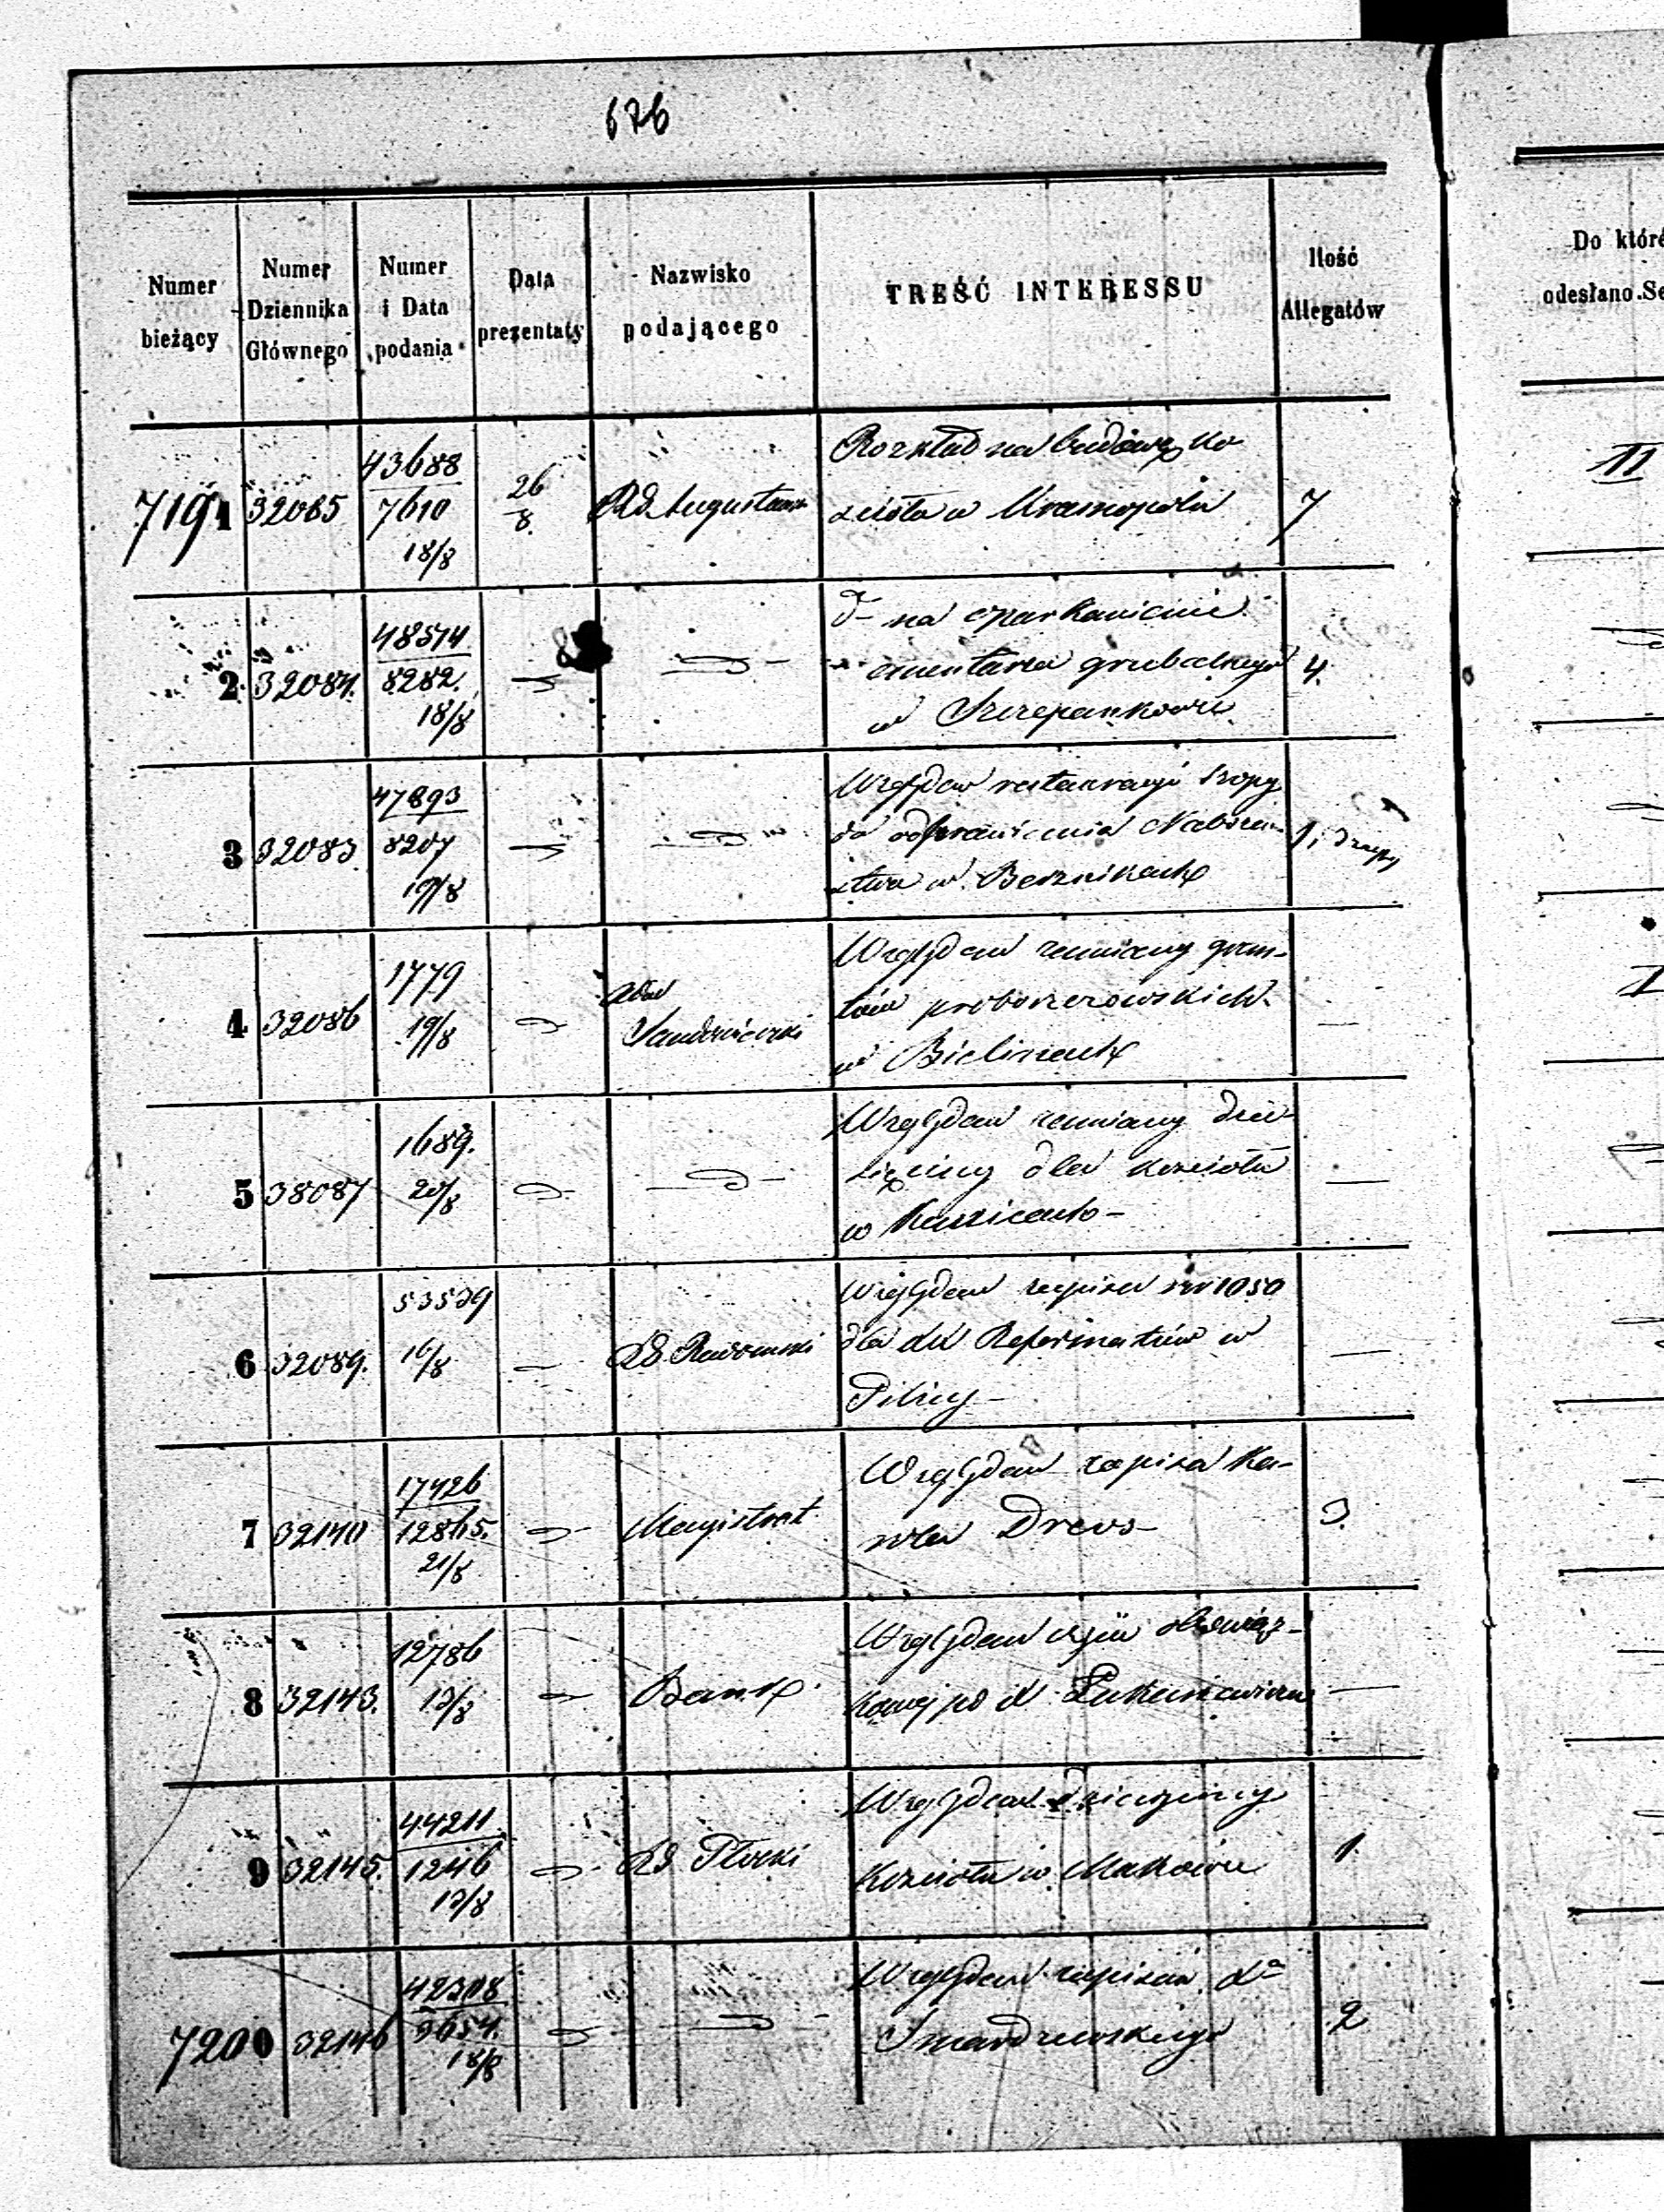 676
Numer bieżący
Numer Dziennika Głównego
Numer i Data podania
Data prezentaty
Nazwisko podającego
TREŚĆ INTERESSU
Ilość Allegatów
Do któré
odesłano Se
7191 32085 43688 / 7610 18/8 26/8 Rd. Augustows.
Rozkład na budowę ko
ścioła w Krasnopolu
7
11
2 32084. 48514 / 8282. 18/8
d- na oparkanienie
cmentarza grzebalnego
w Szczepankowie
4.
3 32083 47893 / 8207 19/8
Względem restauracyi szopy
do odprawiania Nabożeń-
stwa w Berznikach
1,
4 32086 1779 19/8
Adm Sandomierski
Względem zamiany grun-
tów proboszczowskich
w Bielinach
5 38087 1689. 20/8
Względem zamiany dzie-
sięciny dla kościoła
w
6 32089. 53529 16/8 Rd Radomski
Względem zapisu 1050
dla XX Reformatów w
Pilicy
7 32140 17426 / 12865. 21/8 Magistrat
Względem zapisu Ka-
rola Drews
3.
8 32143. 12786 13/8 Bank
Względem
po X Łukasiewiczu
9 32145. 44211 / 1246 13/8 Rd Płocki
Względem dziesięciny
Kościoła w Makowie
1.
7200 32146 42308 / 5654. 18/8
Względem zapisów Xa
Smardzewskiego
2